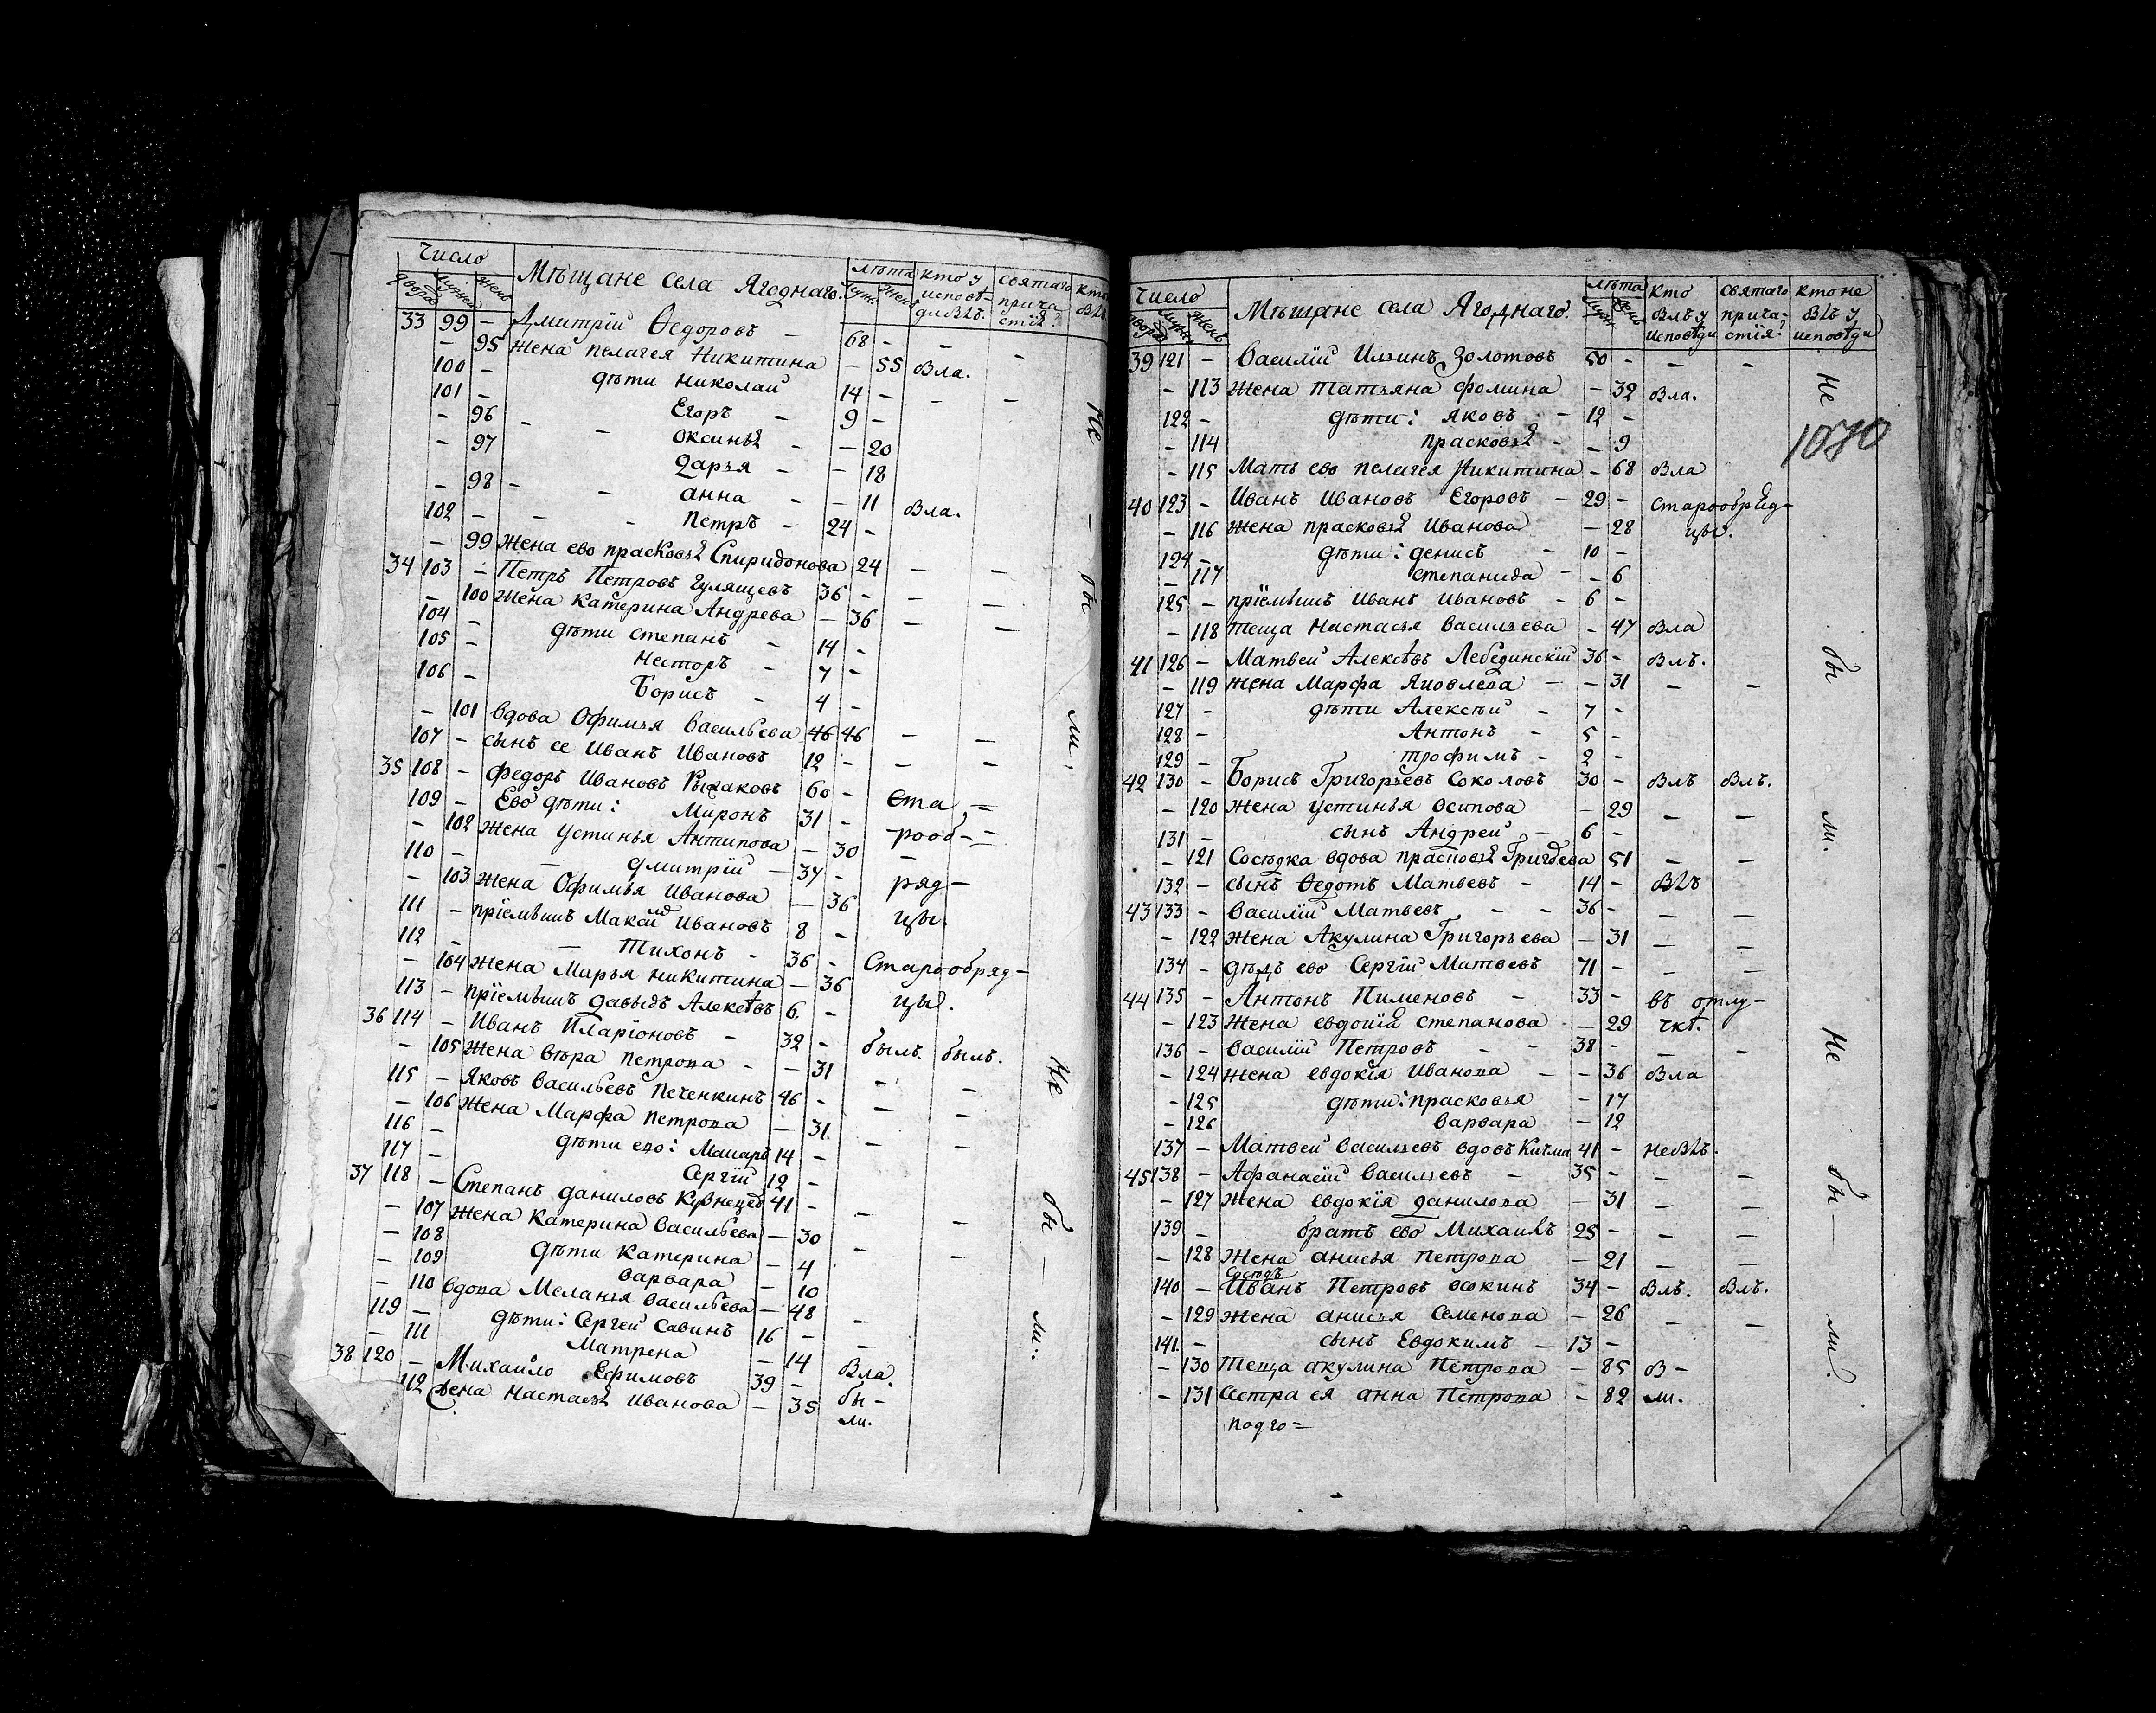 Число Мѣщане села Ягоднаго. лѣта кто у святаго кто
двора мужей женъ муж. жен. исповѣ- прича-
дивлъ. стія?
33 99 - Дмитрій Ѳедоровъ - 68 - -
- 95 жена пелагея Никитина - 55 Вла.
100 - дѣти николай 14 - - -
101 - Егоръ - 9 -
- 96 - - оксинья - - 20
- 97 дарья - - 18
- 98 - - анна - - 11 Вла.
102 - - - Петръ - 24 -
- 99 жена ево прасковья Спиридонова 24 - -
34 103 - Петръ Петровъ Гулящевъ 36 - - -
- 100 жена Катерина Андрева - 36 - -
104 - дѣти степанъ - 14 -
105 - Несторъ - 7 -
106 - Борисъ - 4 -
- 101 вдова Офимья васильева 46 46 - -
107 - сынъ ее Иванъ Ивановъ 12 - - -
35 108 - федоръ Ивановъ 60 - Ста =
109 - Ево дѣти: Миронъ 31 - -рооб- =
- 102 жена устинья Антипова - 30 -
110 - - дмитрій - 37 - ряд-
- 103 жена Офимья Иванова - 36 цы.
111 - пріемышъ Ивановъ 8 -
112 - - Тихонъ - 36 - Старообряд-
- 104 жена Марья никитина - 36 цы.
113 - пріемышъ давыдъ Алексѣвъ 6 -
36 114 - Иванъ Иларіоновъ - 32 - былъ. былъ.
- 105 жена вѣра петрова - - 31 - -
115 - Яковъ васильевъ Печенкинъ 46 - - -
- 106 жена Марфа петрова - 31. - -
116 - дѣти ево: Макаръ 14 -
117 - Сергій 12 -
37 118 - Степанъ даниловъ Кузнецов 41 - - -
- 107 жена Катерина васильева - 30 - -
- 108 дѣти катерина - 4
- 109 варвара - 10
- 110 вдова Меланья васильева - 48 -
119 - дѣти: Сергей Савинъ 16 - -
- 111 Матрена - 14 Вла.
38 120 - Михайло Ефимовъ 39 - бы-
112 жена настасья Иванова - 35 ли.
Не - бы ли.
Не бы - ли.
Число Мѣщане села Ягоднаго. лѣта кто святаго кто не
двора мужей женъ муж. жен. влъ у прича- влъ у
исповѣди стія? исповѣди
39 121 - Василій Ильинъ Золотовъ 50 - - -
- 113 жена татьяна фомина - 32 вла.
122 - дѣти: яковъ - 12 -
1070
- 114 прасковья - - 9
- 115 Мать ево пелагея Никитина - 68 вла
40 123 - Иванъ Ивановъ Егоровъ - 29 - старообряд-
- 116 жена прасковья Иванова - 28 цы.
124 - дѣти: денисъ - 10 -
- 117 степанида - - 6
125 - пріемышъ Иванъ Ивановъ - 6 -
- 118 теща настасья васильева - 47 вла
41 126 - Матвей Алексѣвъ Лебединскій 36 - влъ.
- 119 жена Марфа Яковлева - - 31 - -
127 - дѣти Алексѣй - 7 -
128 - Антонъ - 5 -
129 - трофимъ - 2 -
42 130 - Борисъ Григорьевъ Соколовъ 30 - влъ влъ.
- 120 жена устинья осипова - 29 - -
131 - сынъ Андрей - 6 -
- 121 Сосѣдка вдова прасковья 51 - -
132 - сынъ Ѳедотъ Матвевъ - 14 - влъ
43 133 - василій Матвевъ - - 36 - - -
- 122 жена Акулина Григорьева - 31 - -
134 - дѣдъ ево Сергій Матвевъ 71 - - -
44 135 - Антонъ Пименовъ - 33 - въ отлу-
- 123 жена евдокія степанова - 29 чкѣ.
136 - василій Петровъ - - 38 - - -
- 124 жена евдокія Иванова - - 36 вла
- 125 дѣти: прасковья - 17
- 126 варвара - 12
137 - Матвей васильевъ вдовъ 41 - невлъ.
45 138 - Афанасій васильевъ - 35 - - -
- 127 жена евдокія данилова - 31 - -
139 - братъ ево Михаилъ 25 - - -
- 128 жена анисья петрова - 21 - -
сосѣдъ
140 - Иванъ Петровъ 34 - влъ. влъ.
- 129 жена анисья семенова - 26 - -
141 - сынъ Евдокимъ - 13 -
- 130 теща акулина Петрова - 85 в-
- 131 сестра ея анна Петрова - 82 ли.
Не бы ли.
Не бы - ли.